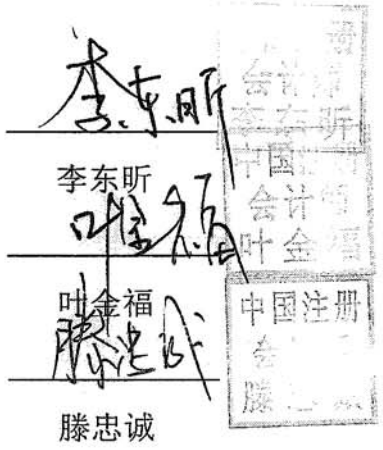 李东昕
李东昕
叶金福
叶金福
滕忠诚
滕忠诚
册
会计
李东昕
中国
会计师
叶金福
中国注册
会
滕